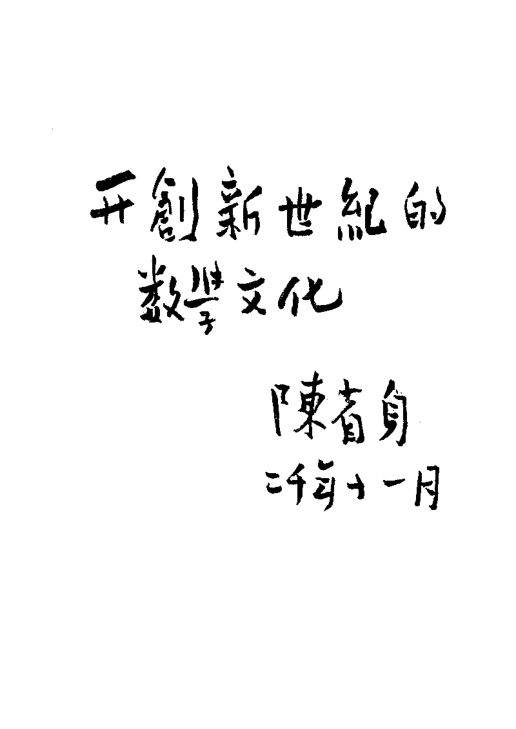 开創新世紀的
数學文化
陳省身
二千年十一月